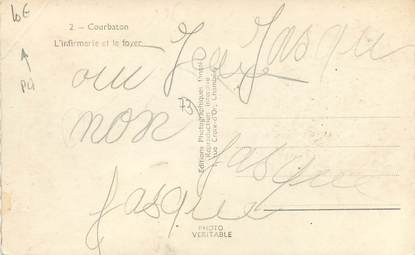 10€
2. — Courbaton
L'infirmerie et le foyer
Jasque
oui
non
73
Jasque
Jasque
Editions Photographiques
Reproduction Interdite
rue Croix-d'Or, Chambéry
PHOTO
VÉRITABLE